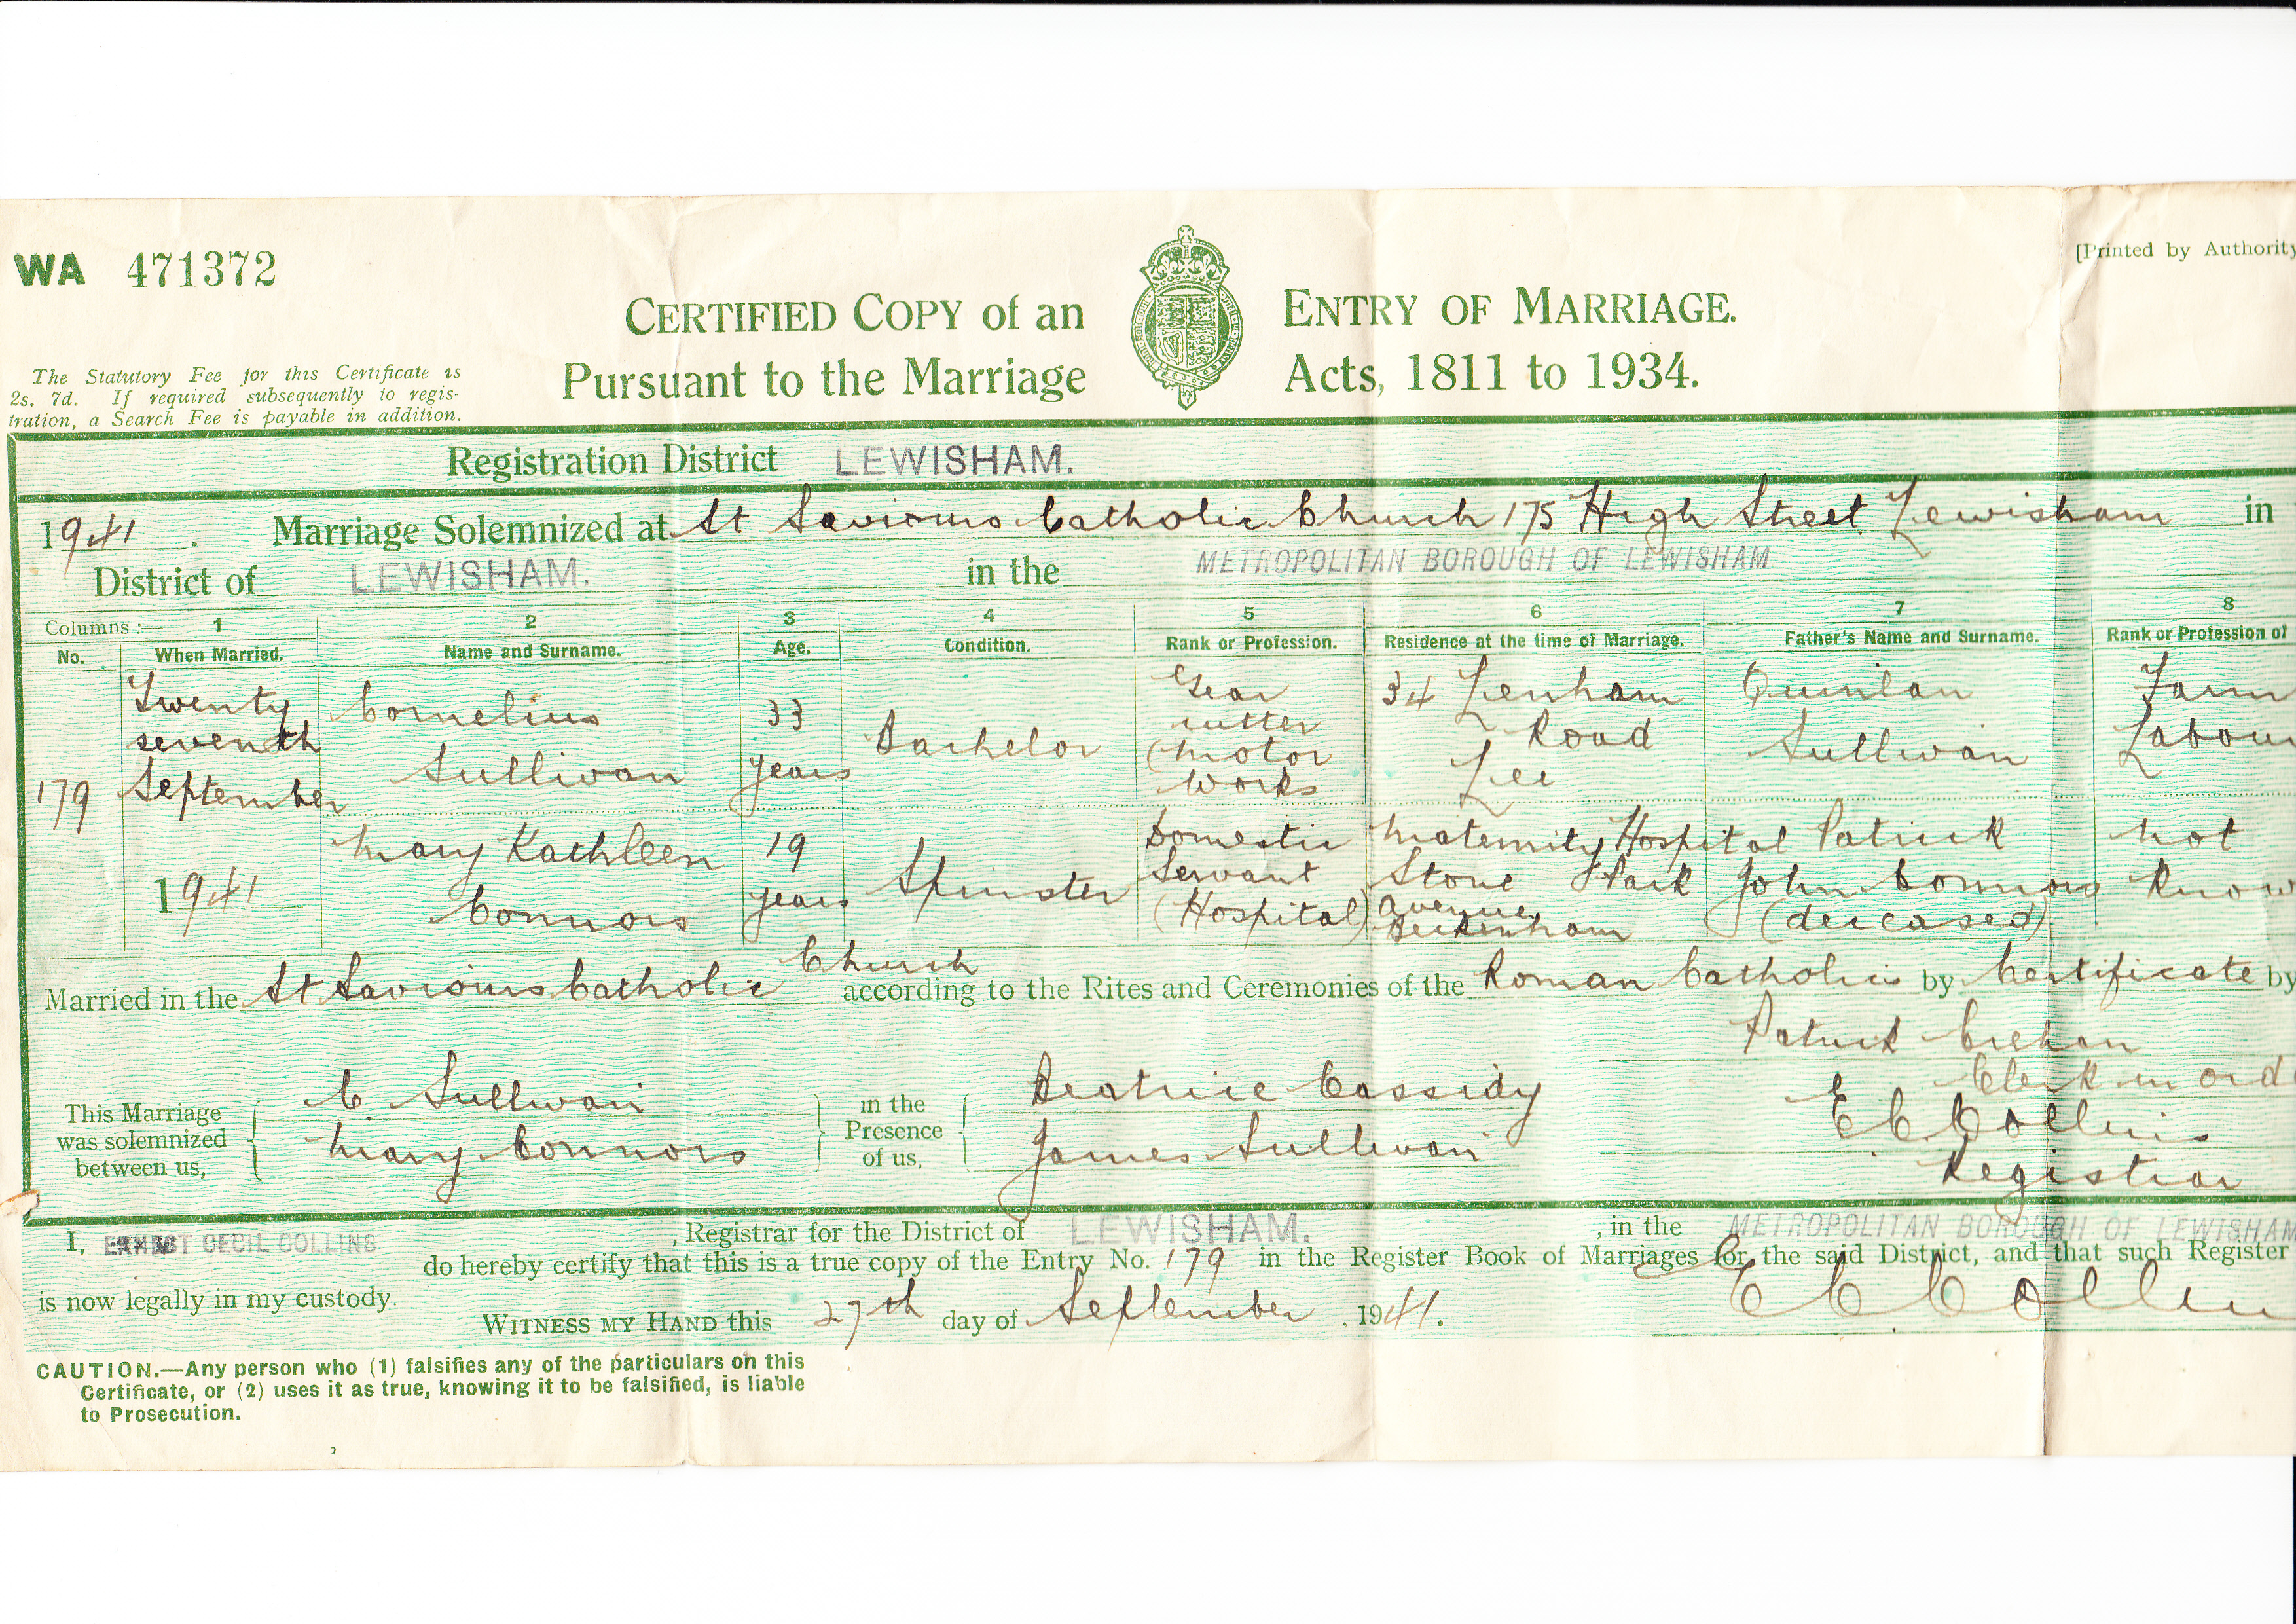 WA 471372
[Printed by Authority
CERTIFIED COPY of an ENTRY OF MARRIAGE.
Pursuant to the Marriage Acts, 1811 to 1934.
The Statutory Fee for this Certificate is
2s. 7d. If required subsequently to regis-
tration, a Search Fee is payable in addition.
Registration District LEWISHAM.
1941. Marriage Solemnized at St Saviours Catholic Church 175 High Street Lewisham in
District of LEWISHAM. in the METROPOLITAN BOROUGH OF LEWISHAM
Columns :— 1 2 3 4 5 6 7 8
No. When Married. Name and Surname. Age. Condition. Rank or Profession. Residence at the time of Marriage. Father's Name and Surname. Rank or Profession of
179
Twenty
seventh
September
1941
Cornelius
Sullivan
33
years
Bachelor
Gear
cutter
(Motor
Works
34 Lenham
Road
Lee
Quinlan
Sullivan
Farm
Labour
Mary Kathleen
Connors
19
years
Spinster
Domestic
Servant
(Hospital)
Maternity Hospital
Stone Park
Avenue
Beckenham
Patrick
John Connors
(deceased)
Not
Know
Married in the St Saviours Catholic Church according to the Rites and Ceremonies of the Roman Catholics by Certificate by
This Marriage
was solemnized
between us,
C. Sullivan
Mary Connors
in the
Presence
of us,
Beatrice Cassidy
James Sullivan
Patrick Crehan
Clerk in ord
E C Collins
Registrar
I, ERNEST CECIL COLLINS, Registrar for the District of LEWISHAM., in the METROPOLITAN BOROUGH OF LEWISHAM
do hereby certify that this is a true copy of the Entry No. 179 in the Register Book of Marriages for the said District, and that such Register
is now legally in my custody.
WITNESS MY HAND this 27th day of September. 1941.
E C Collin
CAUTION.—Any person who (1) falsifies any of the particulars on this
Certificate, or (2) uses it as true, knowing it to be falsified, is liable
to Prosecution.